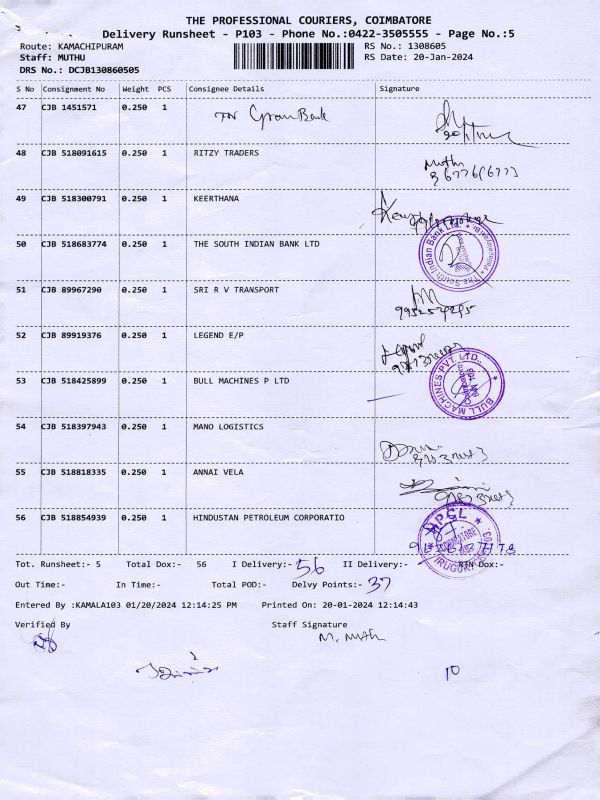 THE PROFESSIONAL COURIERS, COIMBATORE
Delivery Runsheet - P103 - Phone No.:0422-3505555 - Page No.:5
Route: KAMACHIPURAM RS No.: 1308605
Staff: MUTHU RS Date: 20-Jan-2024
DRS No.: DCJB130860505
S No Consignment No Weight PCS Consignee Details Signature
47 CJB 1451571 0.250 1 Bank
48 CJB 518091615 0.250 1 RITZY TRADERS Muthu
49 CJB 518300791 0.250 1 KEERTHANA
50 CJB 518683774 0.250 1 THE SOUTH INDIAN BANK LTD The South Indian Bank Ltd.
51 CJB 89967290 0.250 1 SRI R V TRANSPORT
52 CJB 89919376 0.250 1 LEGEND E/P
53 CJB 518425899 0.250 1 BULL MACHINES P LTD BULL MACHINES PVT. LTD.
54 CJB 518397943 0.250 1 MANO LOGISTICS
55 CJB 518818335 0.250 1 ANNAI VELA
56 CJB 518854939 0.250 1 HINDUSTAN PETROLEUM CORPORATIO HPCL COIMBATORE
Tot. Runsheet:- 5 Total Dox:- 56 I Delivery:- 56 II Delivery:- RTN Dox:-
Out Time:- In Time:- Total POD:- Delvy Points:- 37
Entered By :KAMALA103 01/20/2024 12:14:25 PM Printed On: 20-01-2024 12:14:43
Verified By Staff Signature
M. Muthu
10